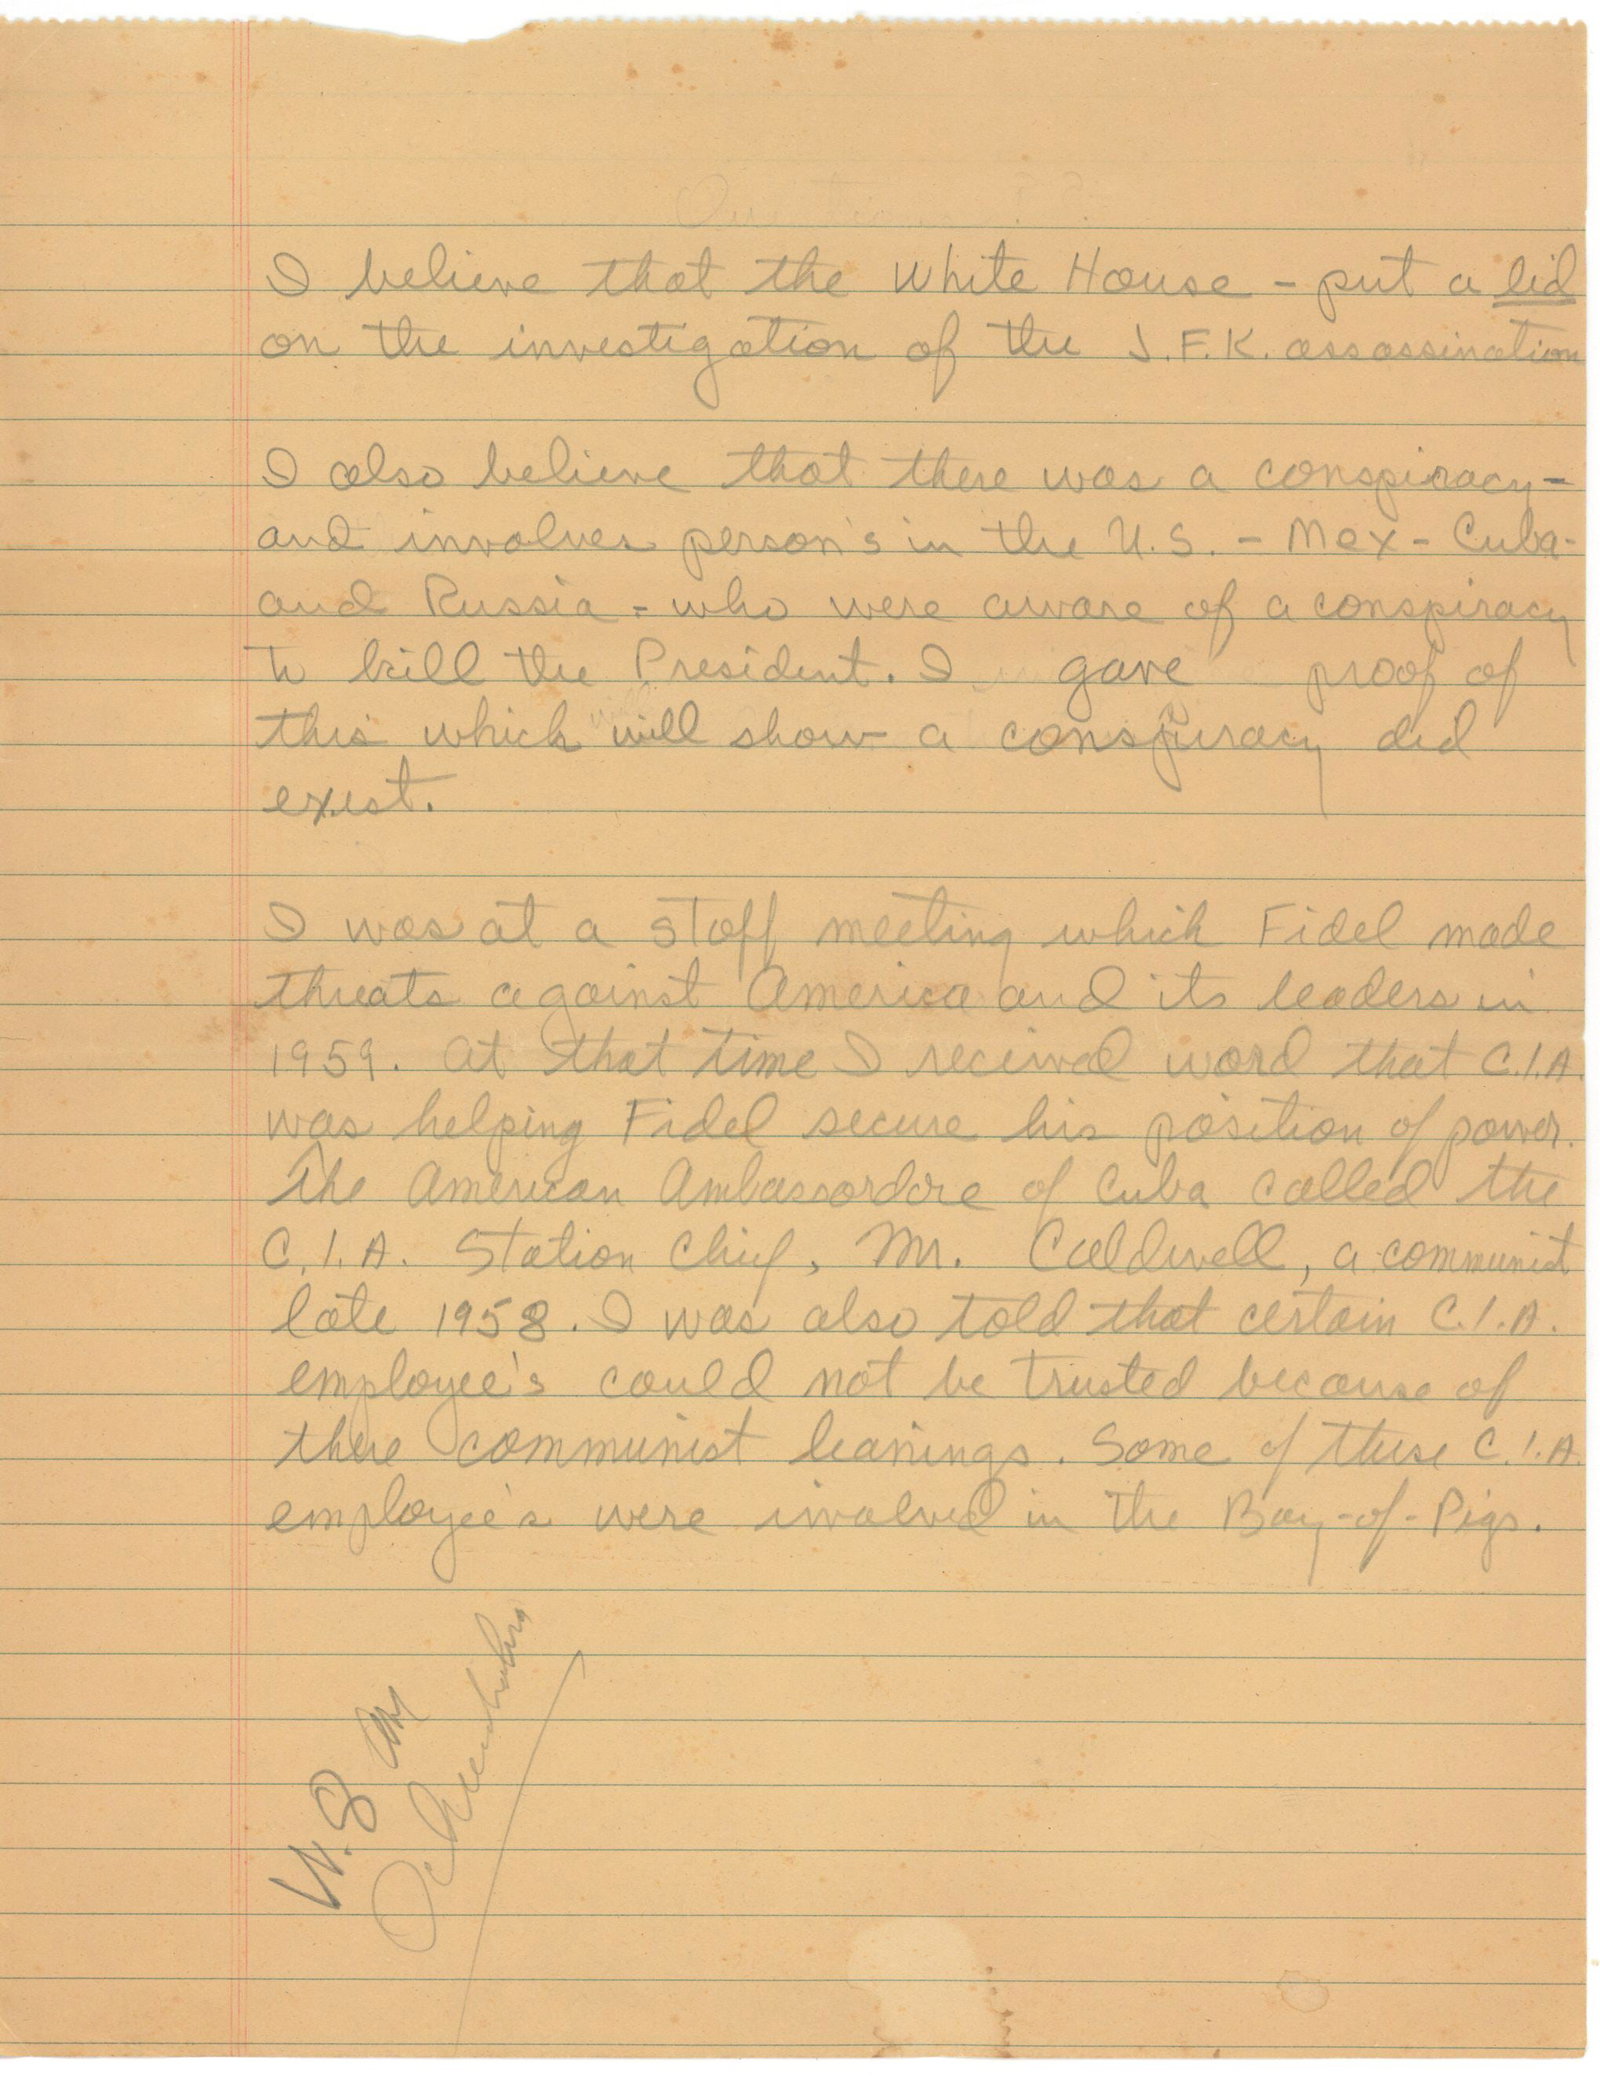 I believe that the White House - put a lid
on the investigation of the J.F.K. assassination
I also believe that there was a conspiracy -
and involves person's in the U.S. - Mex - Cuba -
and Russia - who were aware of a conspiracy
to kill the President. I gave proof of
this which will show a conspiracy did
exist.
I was at a staff meeting which Fidel made
threats against America and its leaders in
1959. At that time I received word that C.I.A.
was helping Fidel secure his position of power.
The American Ambassordore of Cuba called the
C.I.A. Station Chief, Mr. Caldwell, a communist
late 1958. I was also told that certain C.I.A.
employee's could not be trusted because of
there communist leanings. Some of these C.I.A.
employee's were involved in the Bay-of-Pigs.